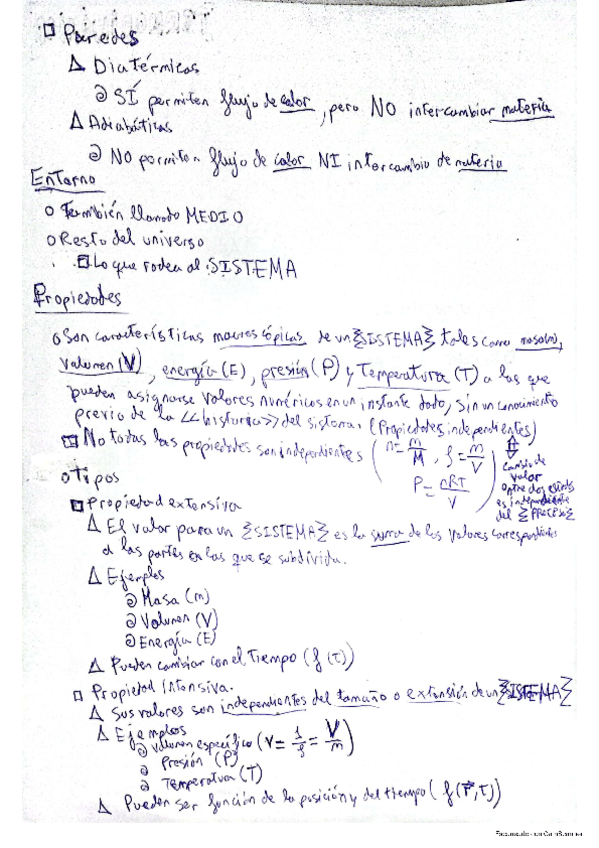 Paredes
Diatérmicas
SÍ permiten flujo de calor, pero NO intercambiar materia
Adiabáticas
NO permiten flujo de calor NI intercambio de materia
Entorno
También llamado MEDIO
Resto del universo
Lo que rodea al SISTEMA
Propiedades
Son características macroscópicas de un {SISTEMA} tales como masa(m),
Volumen (V), energía (E), presión (P) y Temperatura (T) a las que
pueden asignarse valores numéricos en un instante dado, sin un conocimiento
previo de la <<historia>> del sistema. (Propiedades independientes)
No todas las propiedades son independientes (n = m/M, ρ = m/V
P = nRT/V)
Cambio de
valor
entre dos estados
es independiente
del {PROCESO}
Tipos
Propiedad extensiva
El valor para un {SISTEMA} es la suma de los valores correspondientes
a las partes en las que se subdivida.
Ejemplos
Masa (m)
Volumen (V)
Energía (E)
Pueden cambiar con el Tiempo (f(t))
Propiedad Intensiva.
Sus valores son independientes del tamaño o extensión de un {SISTEMA}
Ejemplos
Volumen específico (v = 1/ρ = V/m)
Presión (P)
Temperatura (T)
Pueden ser función de la posición y del tiempo (f(r⃗,t))
Escaneado con CamScanner